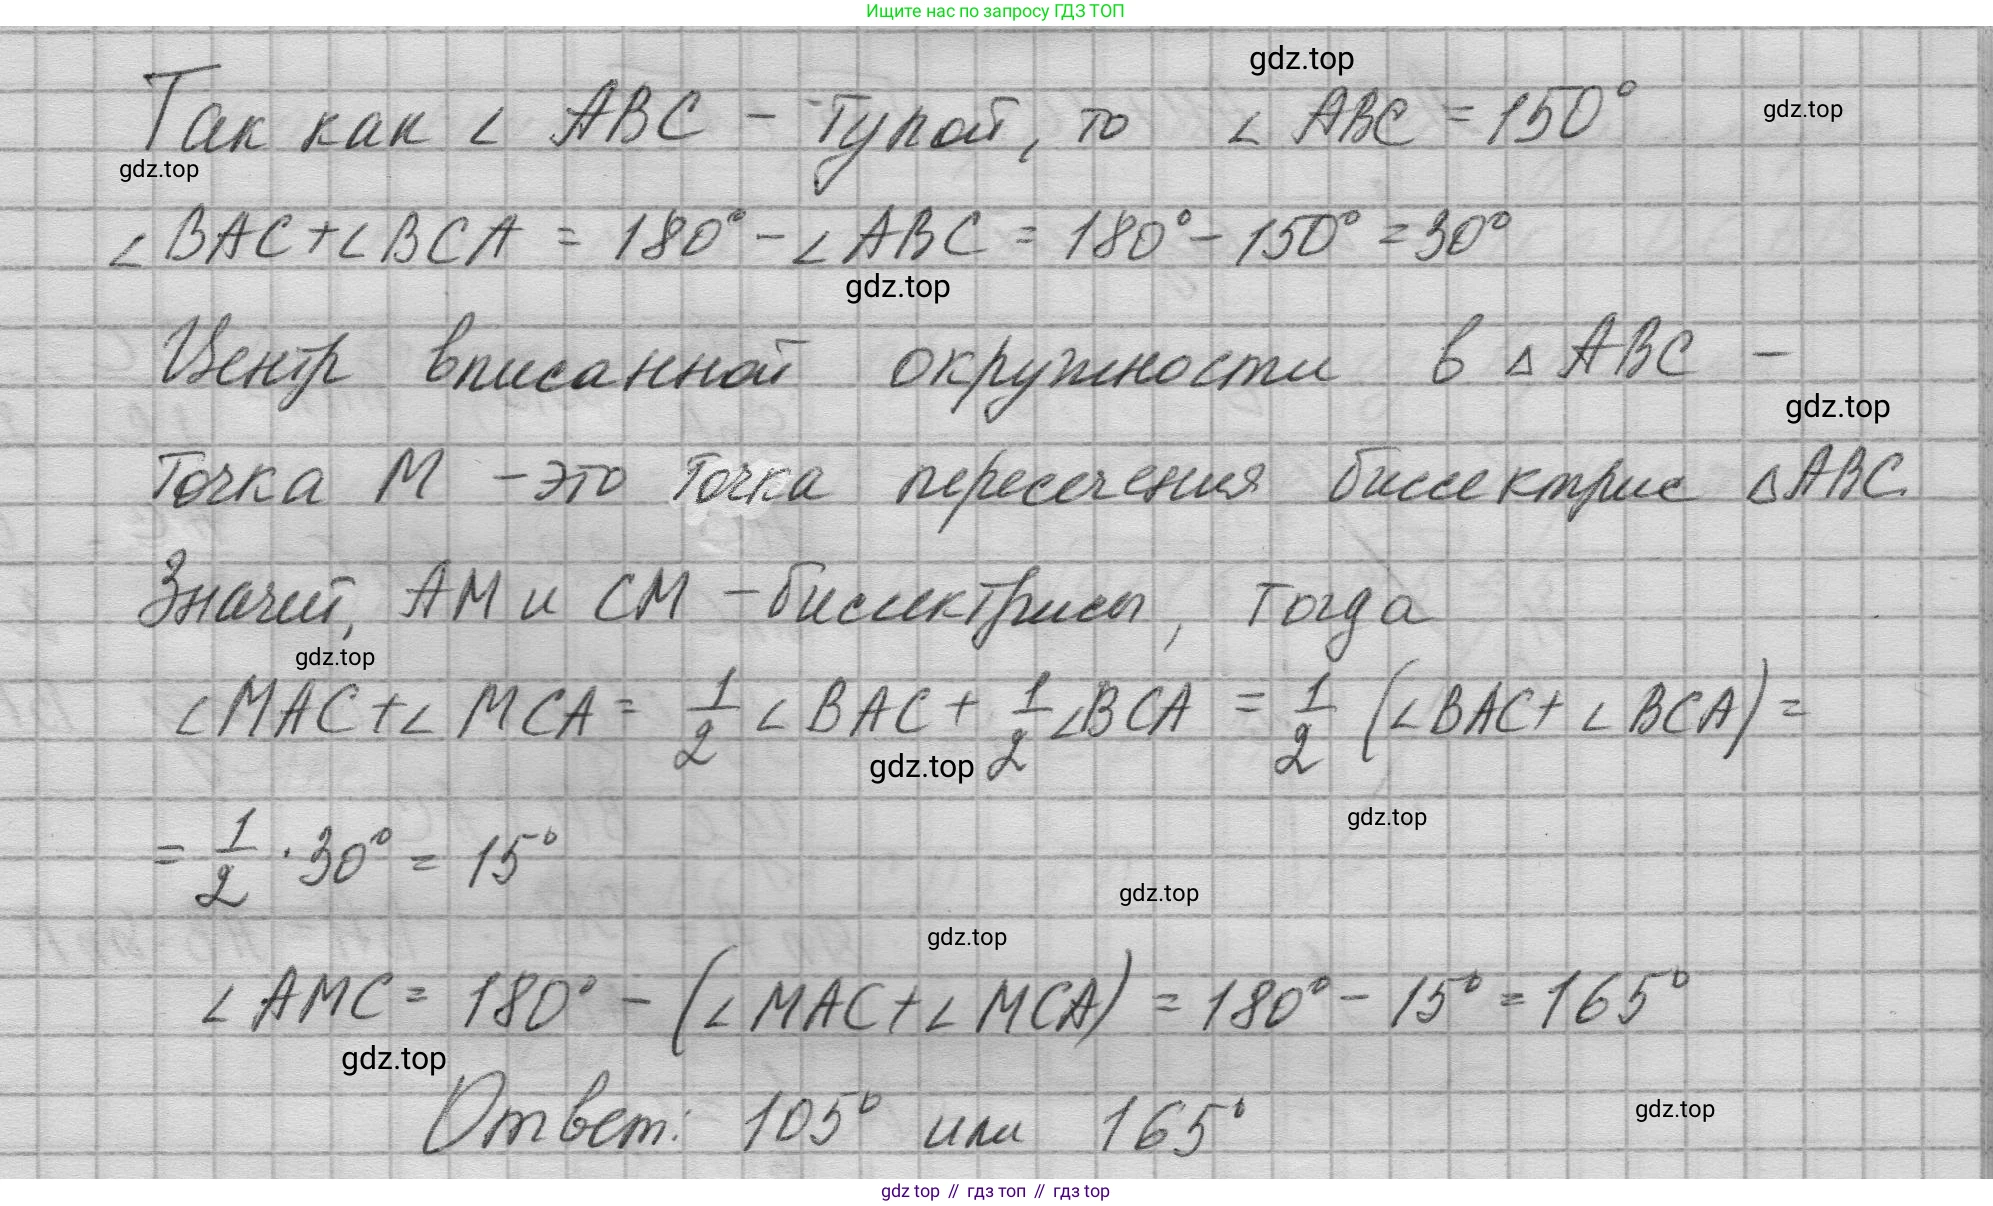 Ищите нас по запросу ГДЗ ТОП
gdz.top
Так как ∠ ABC - тупой, то ∠ ABC = 150°
gdz.top
gdz.top
∠BAC+∠BCA = 180° - ∠ABC = 180° - 150° = 30°
gdz.top
Центр вписанной окружности в △ ABC -
gdz.top
точка M - это точка пересечения биссектрис △ABC.
Значит, AM и CM - биссектрисы, тогда
gdz.top
∠MAC+∠MCA = 1/2 ∠BAC + 1/2 ∠BCA = 1/2 (∠BAC+∠BCA) =
gdz.top
gdz.top
= 1/2 · 30° = 15°
gdz.top
gdz.top
∠AMC = 180° - (∠MAC+∠MCA) = 180° - 15° = 165°
gdz.top
Ответ: 105° или 165°
gdz.top
gdz top // гдз топ // gdz top